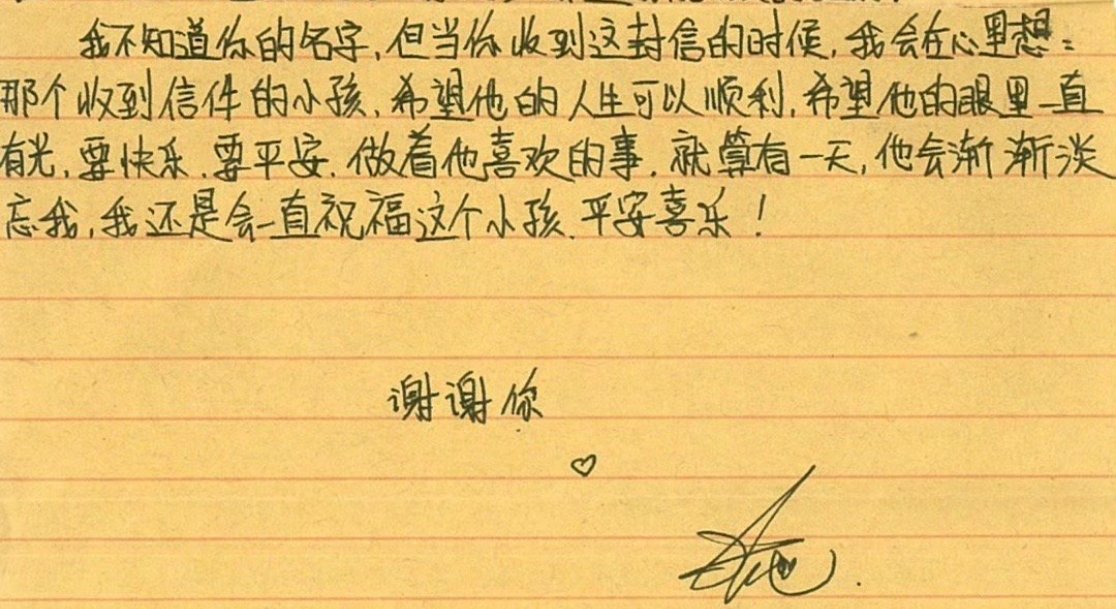 我不知道你的名字,但当你收到这封信的时候,我会在心里想:
那个收到信件的小孩、希望他的人生可以顺利,希望他的眼里一直
有光,要快乐.要平安.做着他喜欢的事.就算有一天,他会渐渐淡
忘我,我还是会一直祝福这个小孩.平安喜乐!
谢谢你